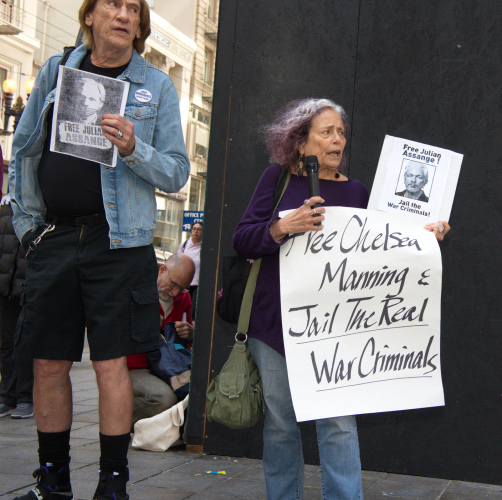 FREE JULIAN
ASSANGE
Free Julian
Assange!
Jail the
War Criminals!
Free Chelsea
Manning &
Jail The Real
War Criminals
OFFICE